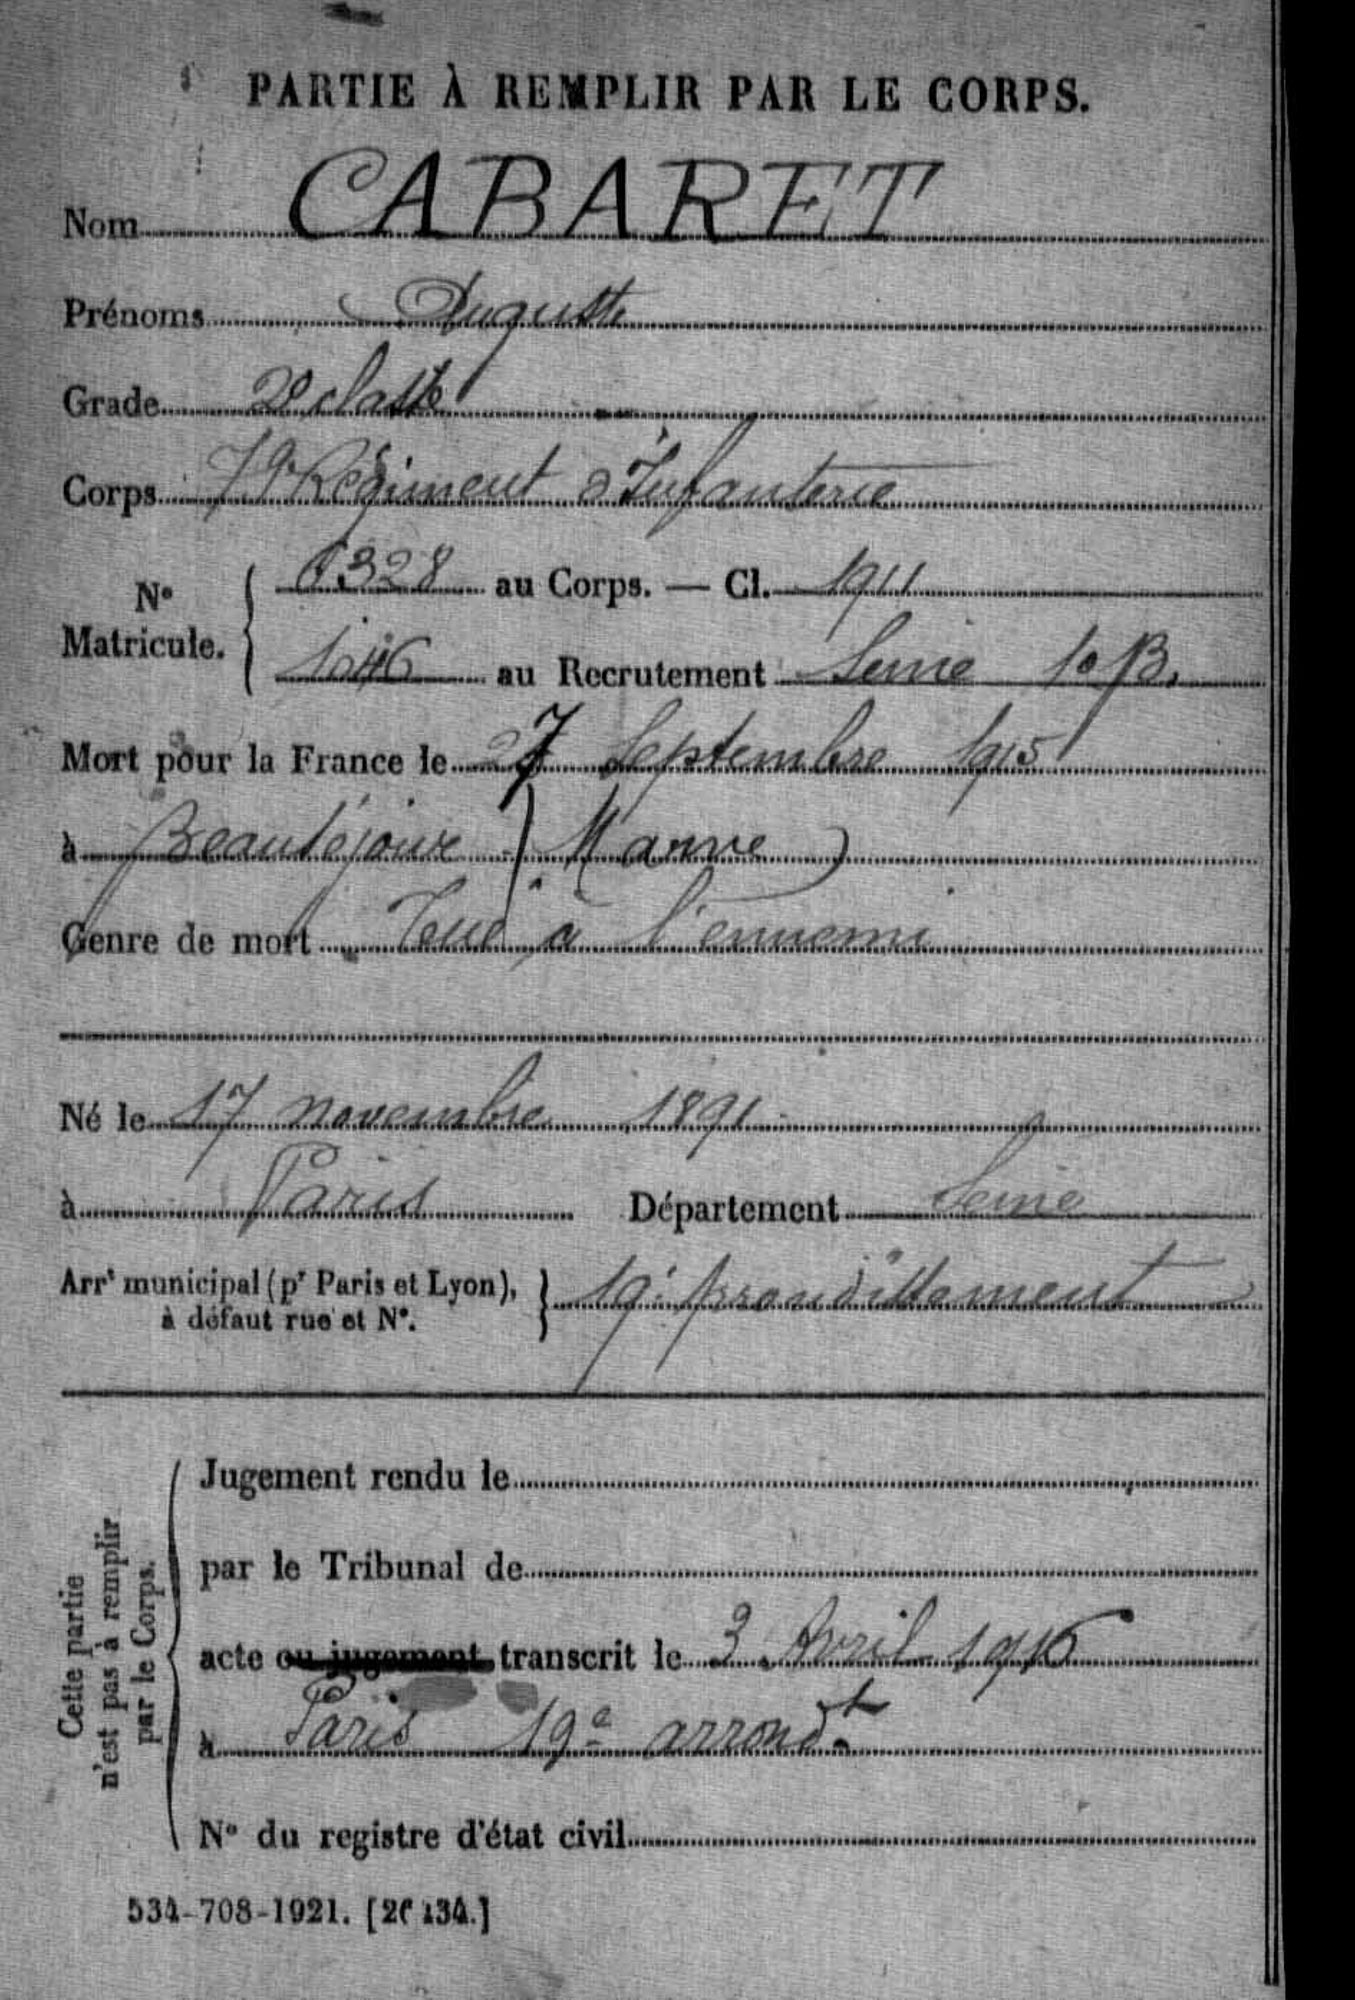 PARTIE À REMPLIR PAR LE CORPS.
Nom CABARET
Prénoms Auguste
Grade 2e classe
Corps 79e Régiment d'Infanterie
No Matricule. { 6328 au Corps. — Cl. 1911
1046 au Recrutement Seine 1o B.
Mort pour la France le 27 Septembre 1915
à Beauséjour (Marne)
Genre de mort Tué à l'ennemi
Né le 17 novembre 1891
à Paris Département Seine
Arrt municipal (pr Paris et Lyon), à défaut rue et No. } 19e Arrondissement
Cette partie n'est pas à remplir par le Corps.
Jugement rendu le
par le Tribunal de
acte ou jugement transcrit le 3 Avril 1916
à Paris 19e arrondt
No du registre d'état civil
534-708-1921. [26134.]